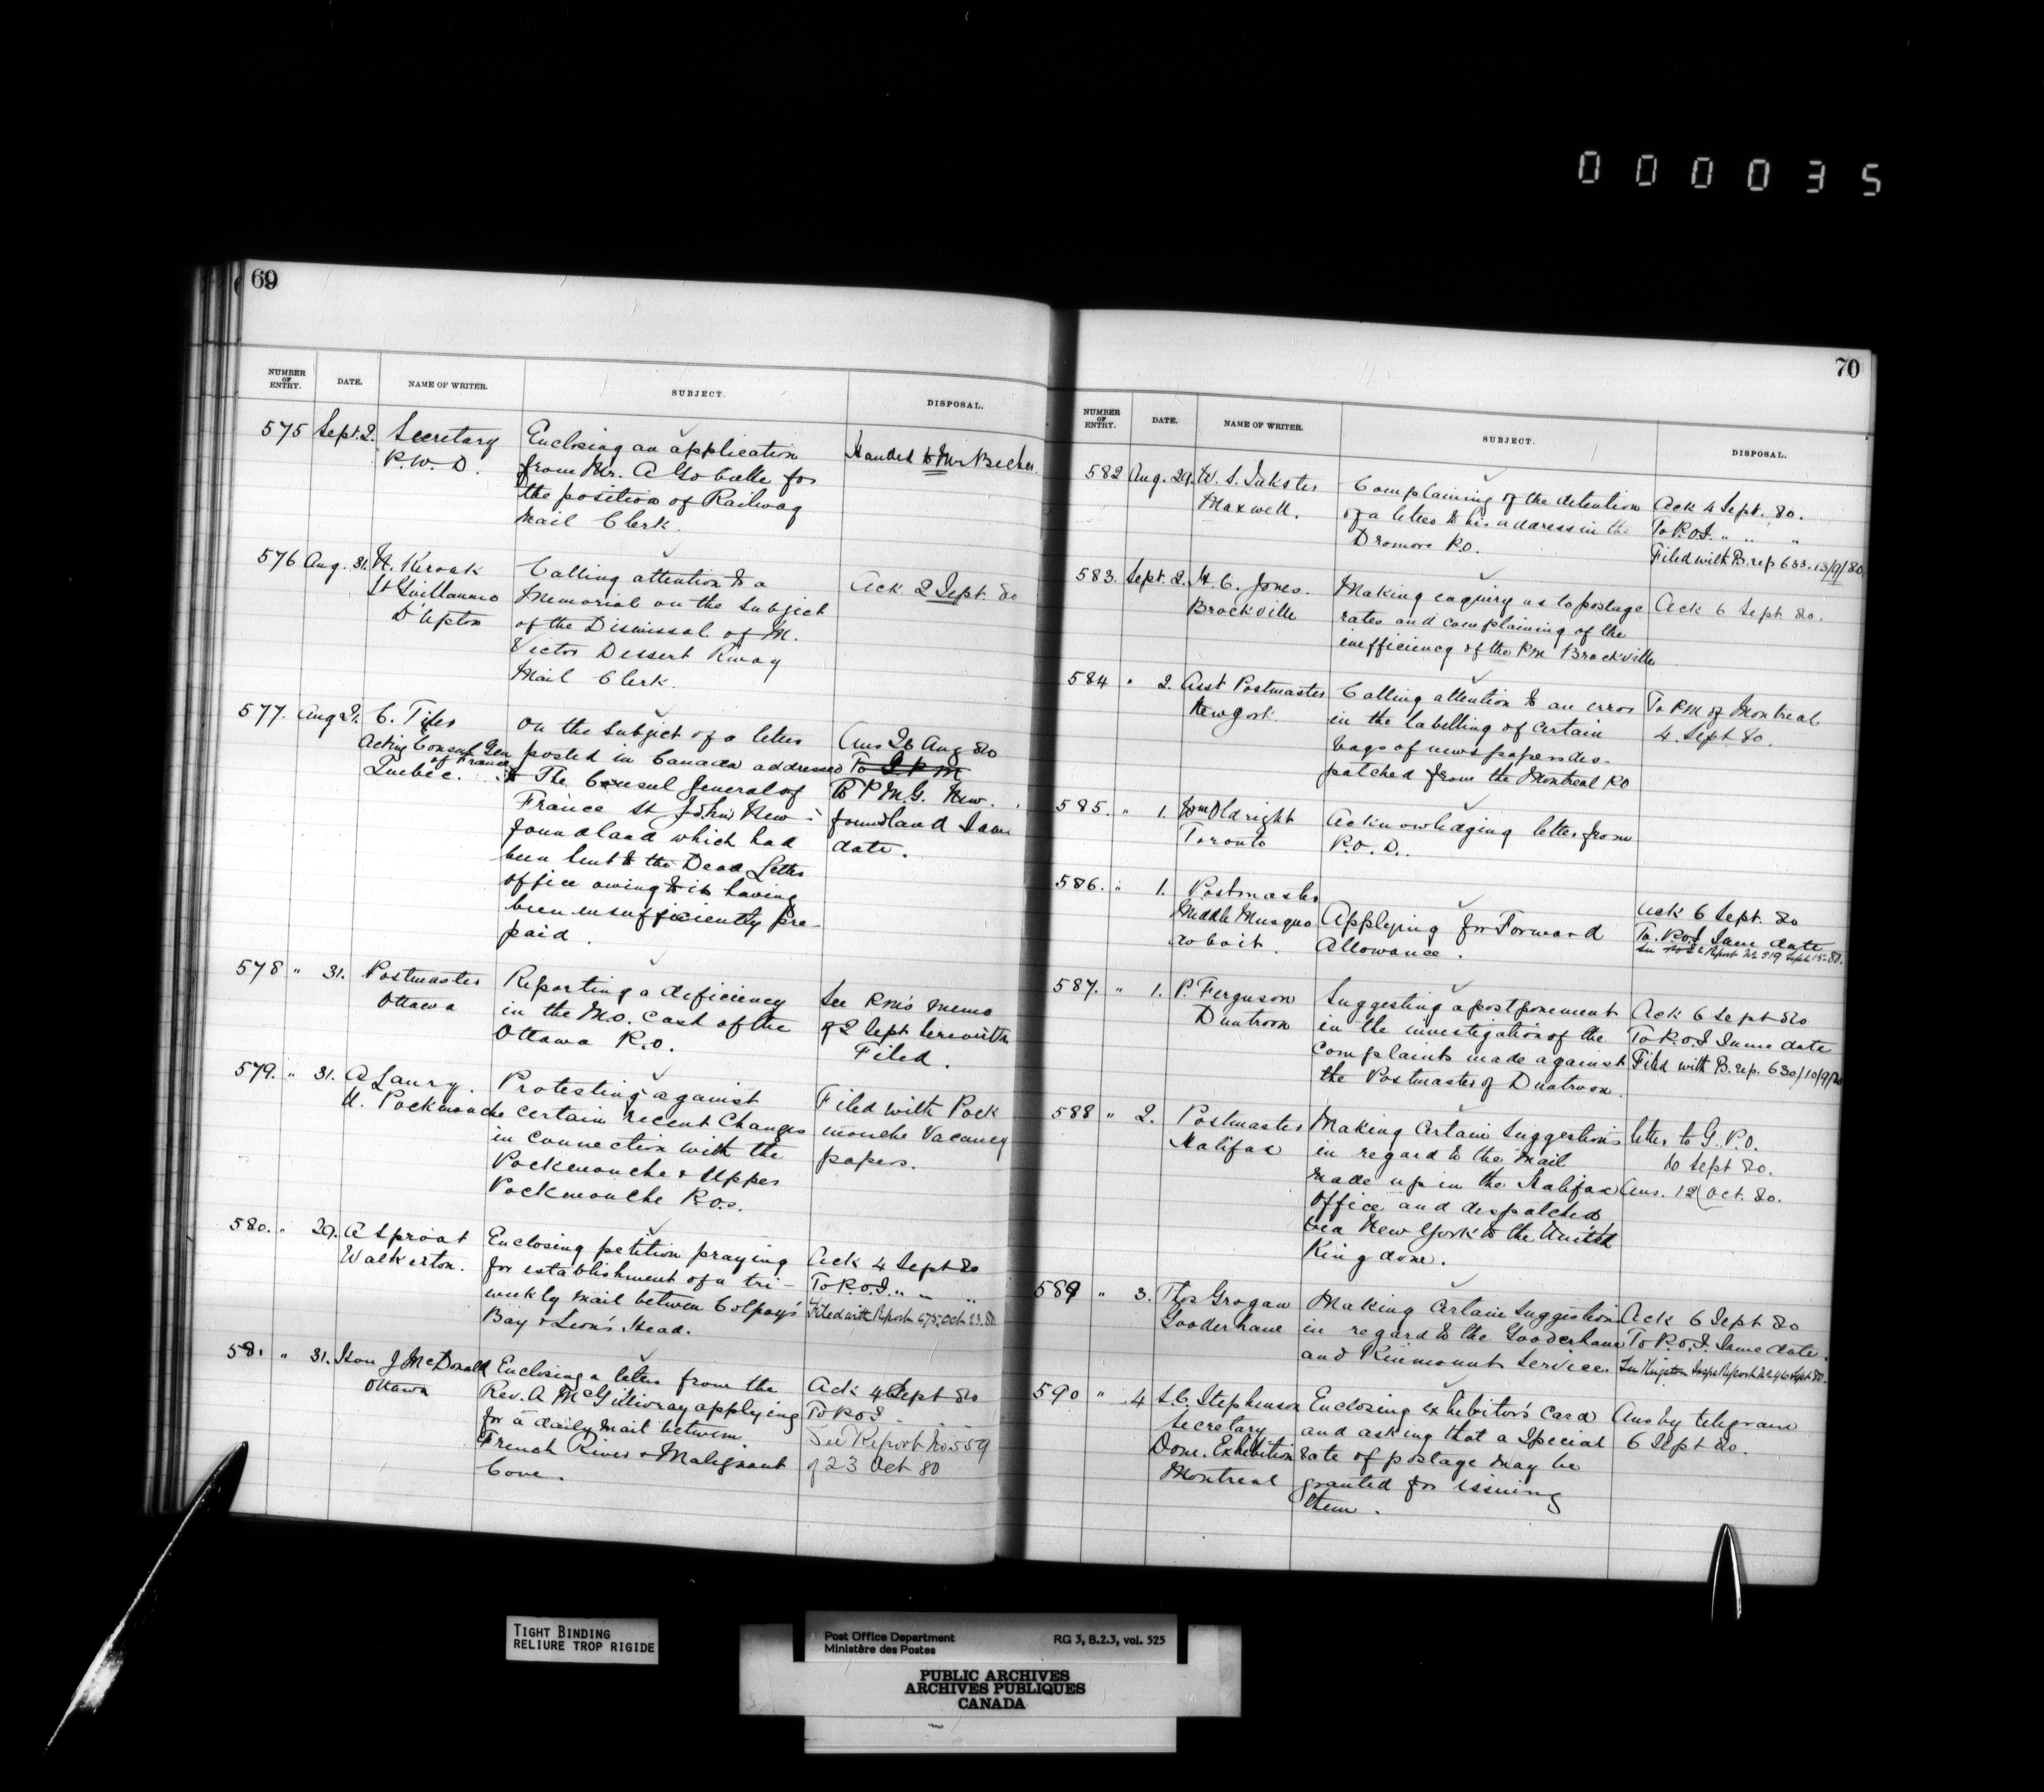 000035
69
NUMBER OF ENTRY. DATE. NAME OF WRITER. SUBJECT. DISPOSAL.
575 Sept. 2. Secretary Enclosing an application Handed to Mr Becher
P.W.D. from Mr. A
the position of Railway
Mail Clerk.
576 Aug. 31. Calling attention to a Ack 2 Sept. 80
St Guillaume Memorial on the subject
D'Upton of the Dismissal of M.
Victor Dessert Rway
Mail Clerk.
577. Aug C. Tiles On the subject of a letter Ans 26 Aug 80
Acting Consul Gen posted in Canada addressed To I P M
of France
Quebec. to The Consul General of To P.M.G. New-
France St John's New- foundland same
foundland which had date.
been sent to the Dead Letter
office owing to its having
been insufficiently pre-
paid.
578 " 31. Postmaster Reporting a deficiency See P.M's memo
Ottawa in the M.O. Cash of the of 2 Sept herewith
Ottawa P.O. Filed.
579. " 31. A Lanry. Protesting against Filed with Pock
U. Pockmouche certain recent Changes mouche Vacancy
in connection with the papers.
Pockmouche & Upper
Pockmouche P.O.s.
580. " 29. A Sproat Enclosing petition praying Ack 4 Sept 80
Walkerton. for establishment of a tri- To P.O.I. " " "
weekly mail between Colpoy's Filed with Report 675, Oct 23. 80
Bay & Lion's Head.
581 " 31. Hon J McDonald Enclosing a letter from the Ack 4 Sept 80
Ottawa Rev. A McGillivray applying To P.O.I
for a daily mail between See Report No 559
French River & Malignant of 23 Oct 80
Cove.
70
NUMBER OF ENTRY. DATE. NAME OF WRITER. SUBJECT. DISPOSAL.
582 Aug. 29. W. S. Inkster Complaining of the detention Ack 4 Sept. 80.
Maxwell. of a letter to his address in the To P.O.I. " " "
Dromore P.O. Filed with B. rep 633. 13/9/80.
583. Sept. 2. H. C. Jones. Making enquiry as to postage Ack 6 Sept 80.
Brockville rates and complaining of the
inefficiency of the P.M. Brockville
584 " 2. Asst Postmaster Calling attention to an error To P.M of Montreal
New York. in the labelling of certain 4. Sept. 80.
bags of newspapers des-
patched from the Montreal P.O
585. " 1. Wm Oldright Acknowledging letter from
Toronto P.O.D.
586. " 1. Postmaster Ack 6 Sept. 80
Middle Musquo Applying for Forward To. P.O.I Same date
doboit. Allowance. See Report No 319 Sept 15-80.
587. " 1. P. Ferguson Suggesting a postponement Ack 6 Sept 80
Duntroon in the investigation of the To P.O.I Same date
complaints made against Filed with B. rep. 630/10/9/80
the Postmaster of Duntroon.
588 " 2. Postmaster Making certain suggestions letter to G.P.O.
Halifax in regard to the mail 10 Sept 80.
made up in the Halifax Ans. 12 Oct. 80.
Office and despatched
via New York to the United
Kingdom.
589 " 3. Thos Grogan Making certain suggestion Ack 6 Sept 80
Gooderham in regard to the Gooderham To P.O.I. Same date.
and Kinmount Service. See Kingston Insps Report Sept 80.
590 " 4 S.C. Stephenson Enclosing exhibitor's card Ans by telegram
Secretary and asking that a special 6 Sept 80.
Dom. Exhibition rate of postage may be
Montreal granted for issuing
them.
TIGHT BINDING
RELIURE TROP RIGIDE
Post Office Department RG 3, B.2.3, vol. 525
Ministère des Postes
PUBLIC ARCHIVES
ARCHIVES PUBLIQUES
CANADA